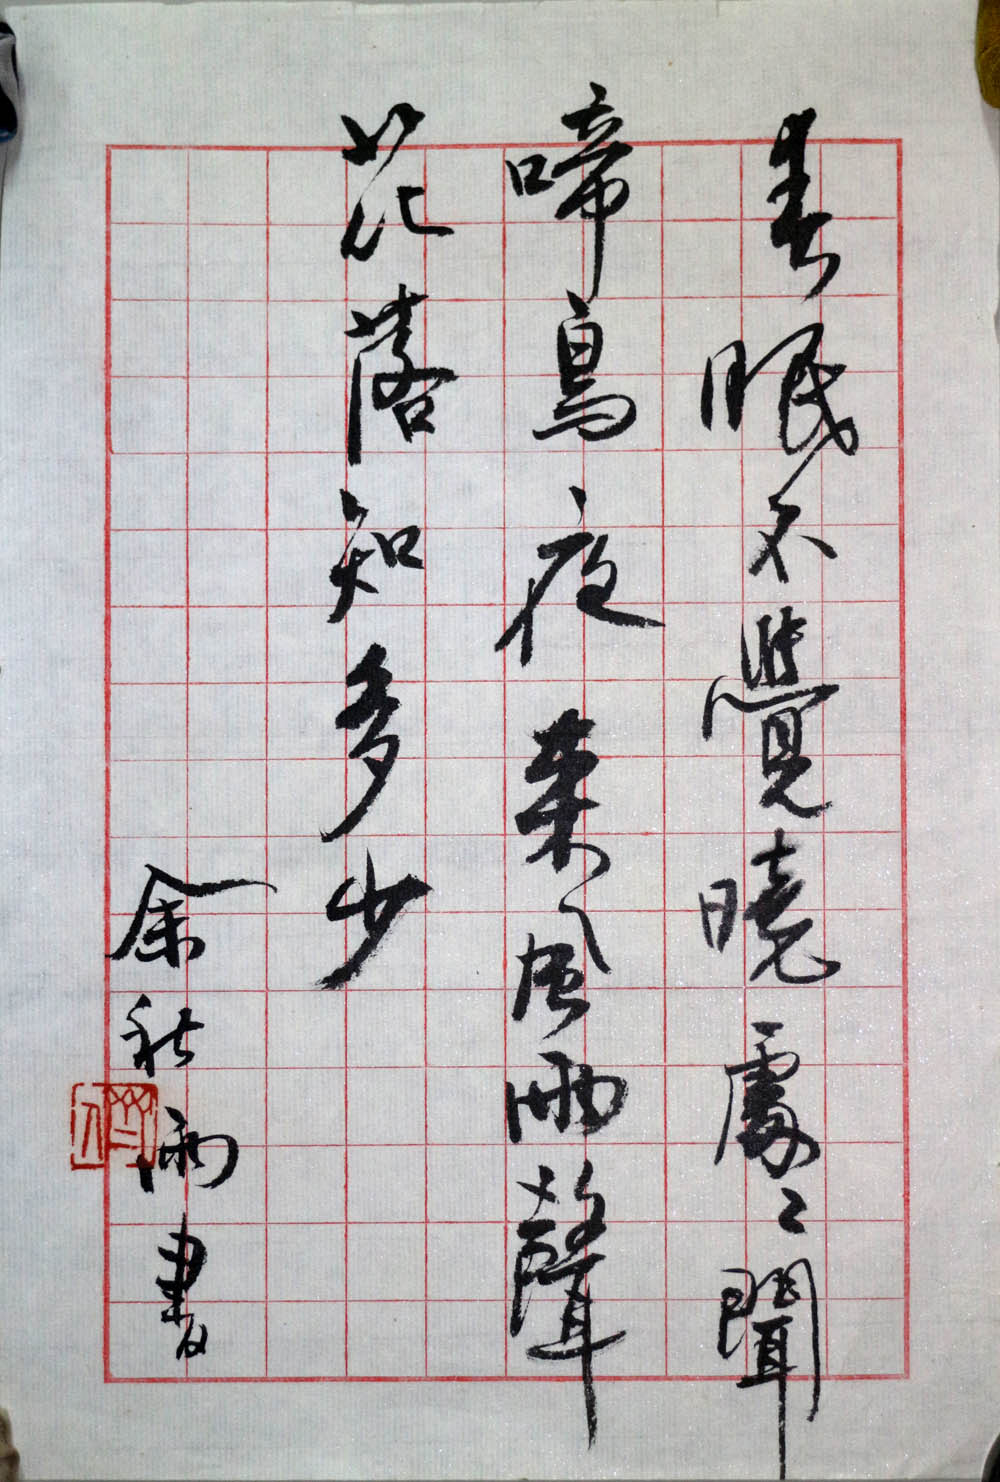 春眠不覺曉處々聞
啼鳥夜来風雨聲
花落知多少
余秋雨書